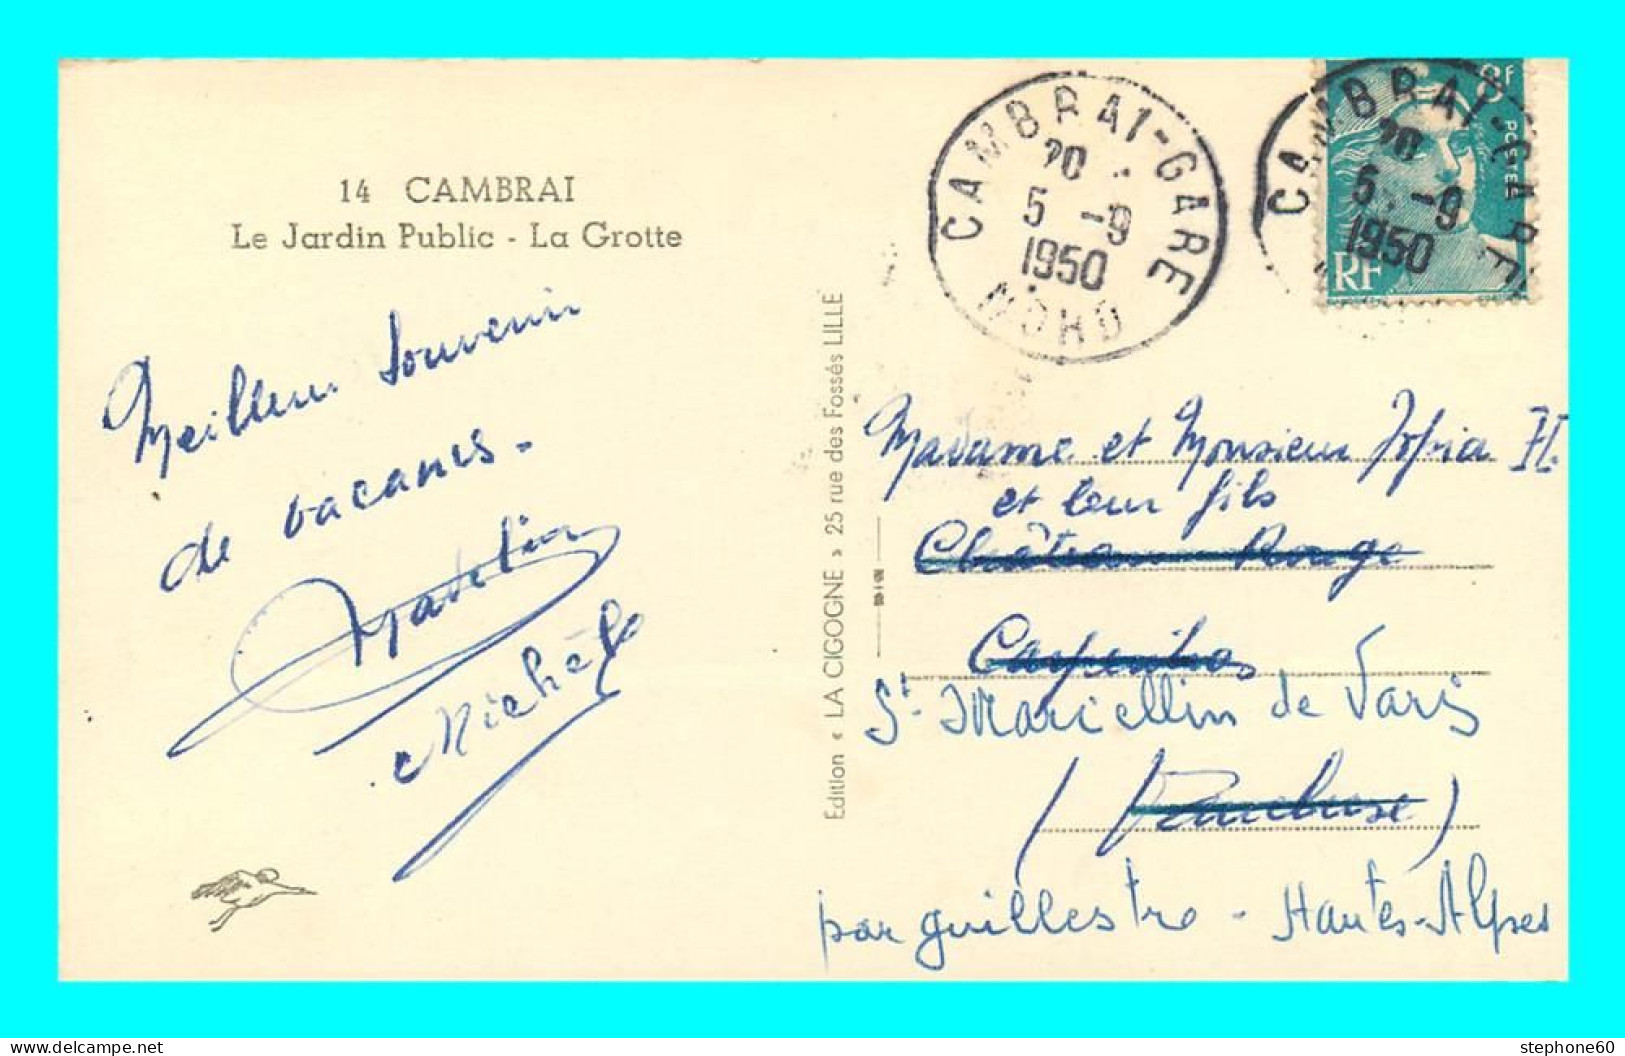 14 CAMBRAI
Le Jardin Public - La Grotte
Meilleur Souvenir
de vacances.
Madelin
Michèle
Edition « LA CIGOGNE » 25 rue des Fossés LILLE
CAMBRAI-GARE
20
5 -9
1950
NORD
CAMBRAI-GARE
20
5 -9
1950
8F
POSTES
RF
Madame et Monsieur
et leur fils
Château Rouge
Carpentras
St. Marcellin de Vars
(Vaucluse)
par Guillestre - Hautes-Alpes
stephone60